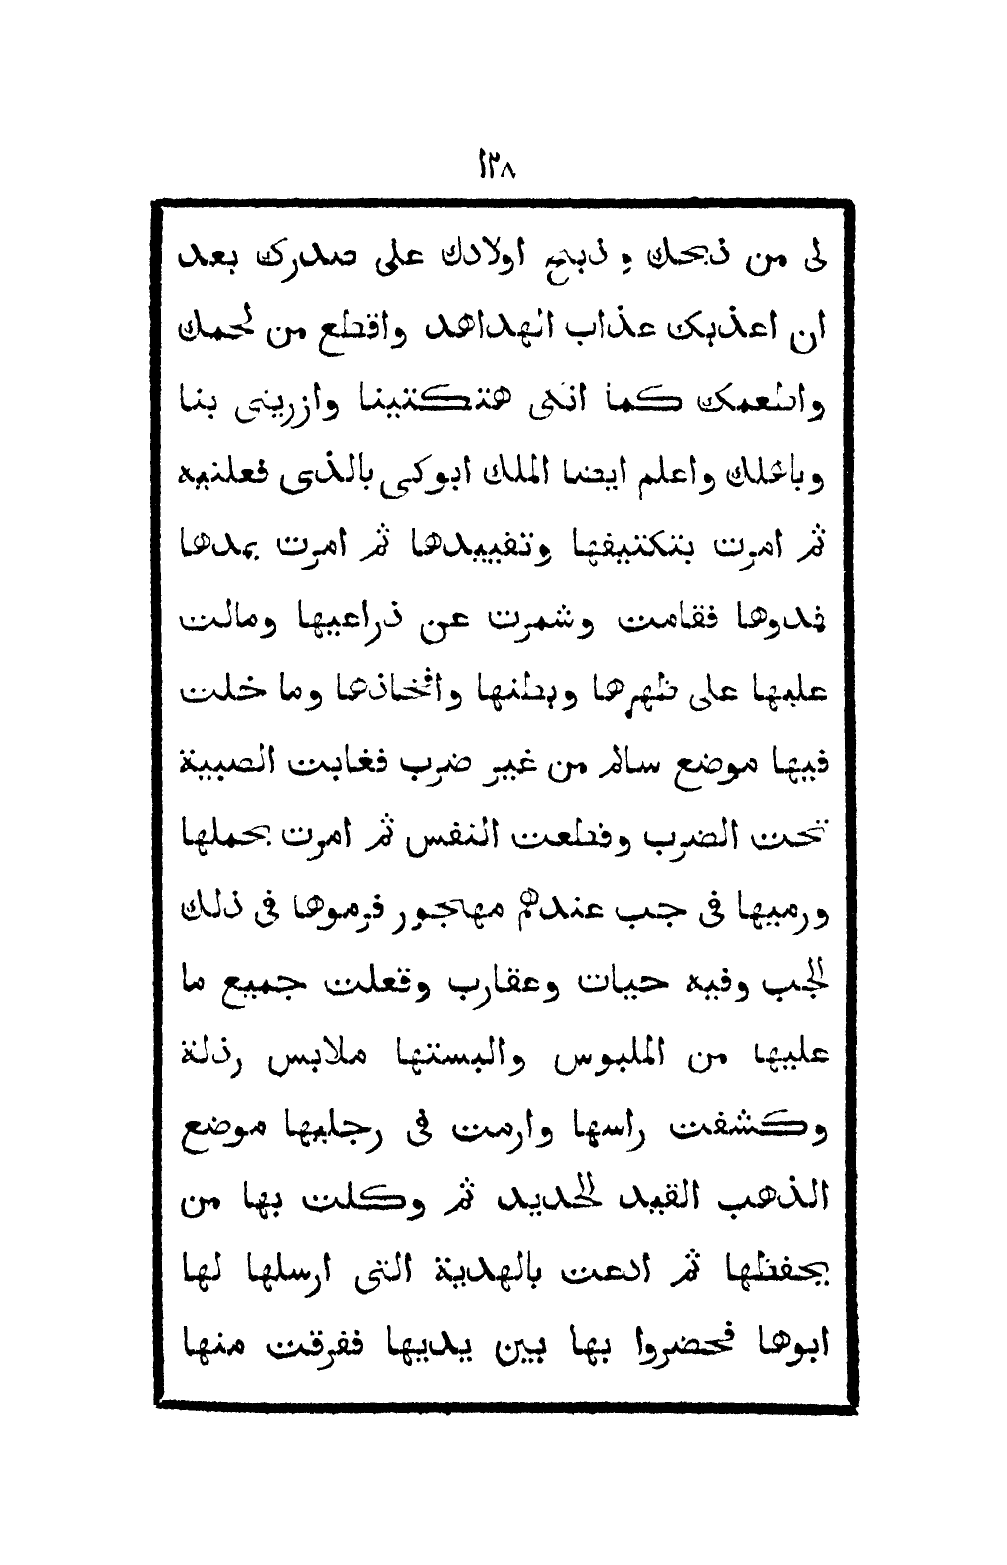 ١٣٨
لى من ذبحك و ذبح اولادك على صدرك بعد
ان اعذبك عذاب الهداهد واقطع من لحمك
واطعمك كما انكى هتكتينا وازرينى بنا
وباهلك واعلم ايضا الملك ابوكى بالذى فعلتيه
ثم امرت بتكتيفها وتقييدها ثم امرت بمدها
فمدوها فقامت وشمرت عن ذراعيها ومالت
عليها على ظهرها وبطنها وافخاذها وما خلت
فيها موضع سالم من غير ضرب فغابت الصبية
تحت الضرب وقطعت النفس ثم امرت بحملها
ورميها فى جب عندهم مهجور فرموها فى ذلك
الجب وفيه حيات وعقارب وقعلت جميع ما
عليها من الملبوس والبستها ملابس رذلة
وكشفت راسها وارمت فى رجليها موضع
الذهب القيد الحديد ثم وكلت بها من
يحفظها ثم ادعت بالهدية التى ارسلها لها
ابوها فحضروا بها بين يديها ففرقت منها